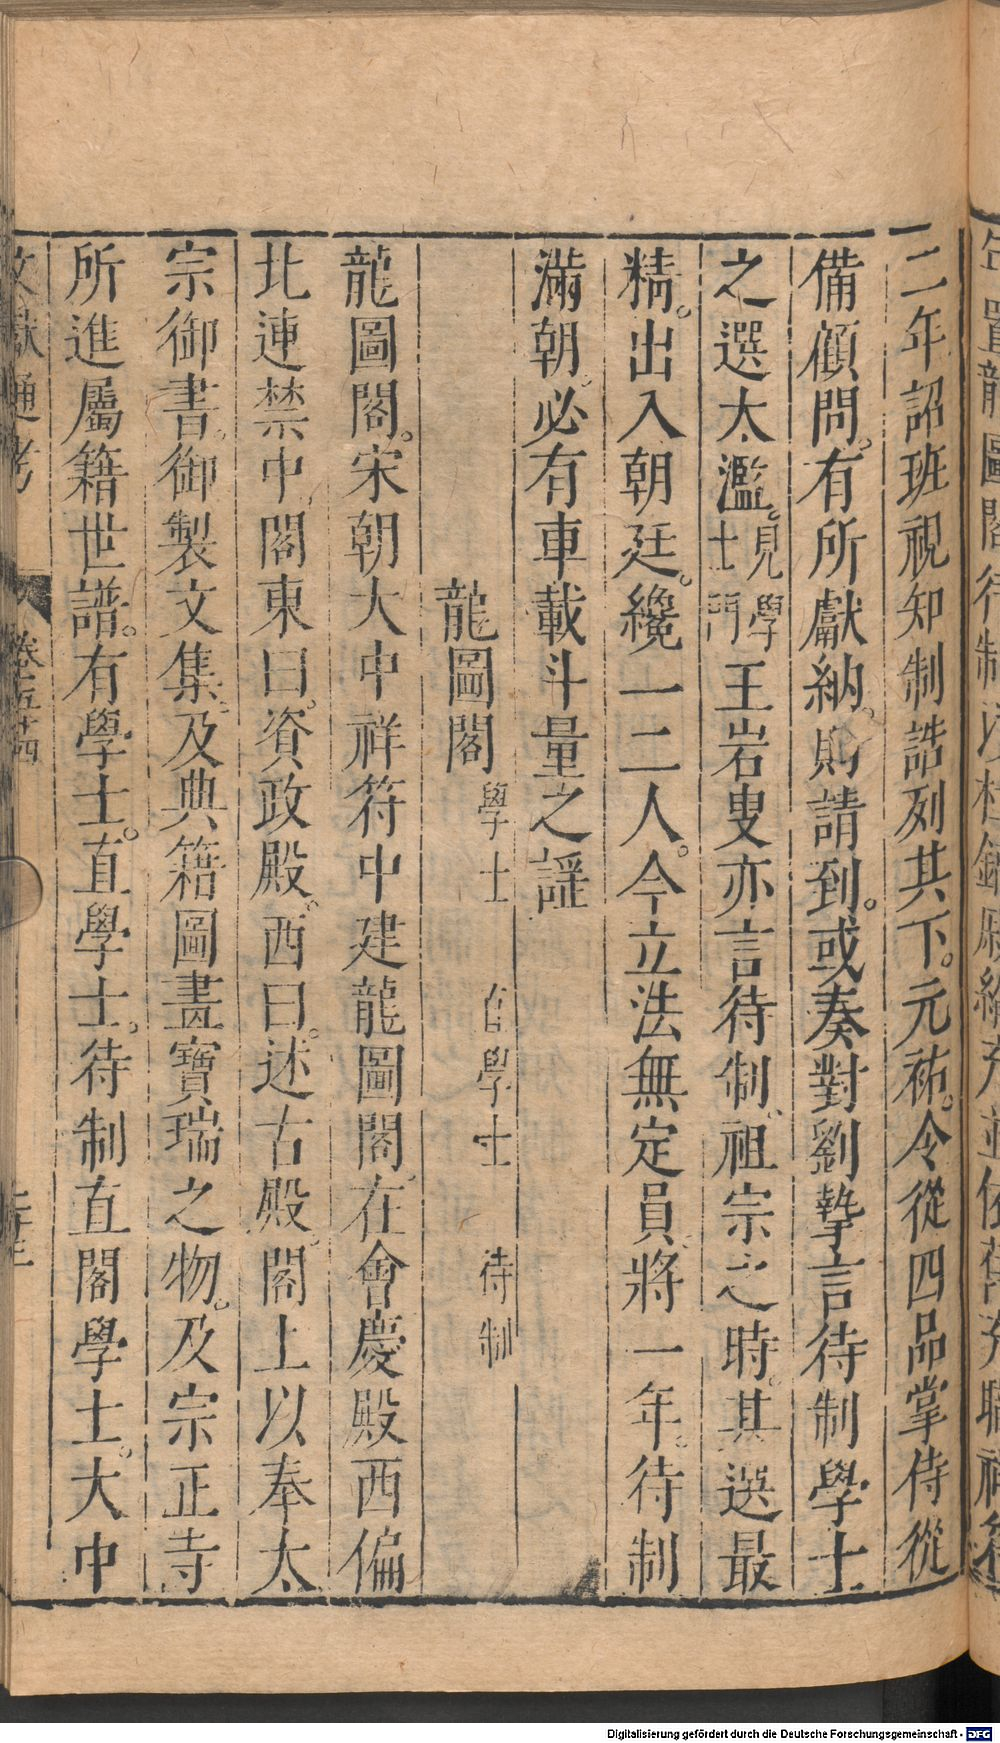 二年詔班視知制誥列其下。元祐。令從四品掌侍從
備顧問。有所獻納。則請到。或奏對劉摯言待制學士
之選太濫。見學士門王岩叟亦言待制。祖宗之時。其選最
精。出入朝廷。纔一二人。今立法無定員。將一年。待制
滿朝。必有車載斗量之謡
龍圖閣 學士 直學士 待制
龍圖閣。宋朝大中祥符中建龍圖閣。在會慶殿西偏
北連禁中。閣東曰。資政殿。西曰。述古殿。閣上以奉太
宗御書。御製文集。及典籍圖畫寶瑞之物。及宗正寺
所進屬籍世譜。有學士。直學士。待制直閣學士。大中
文獻通考 卷之五十四
Digitalisierung gefördert durch die Deutsche Forschungsgemeinschaft - DFG